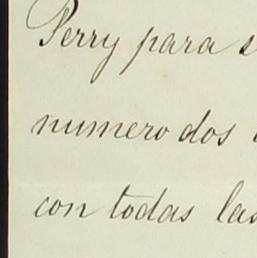 Perry para
numero dos
con todas las